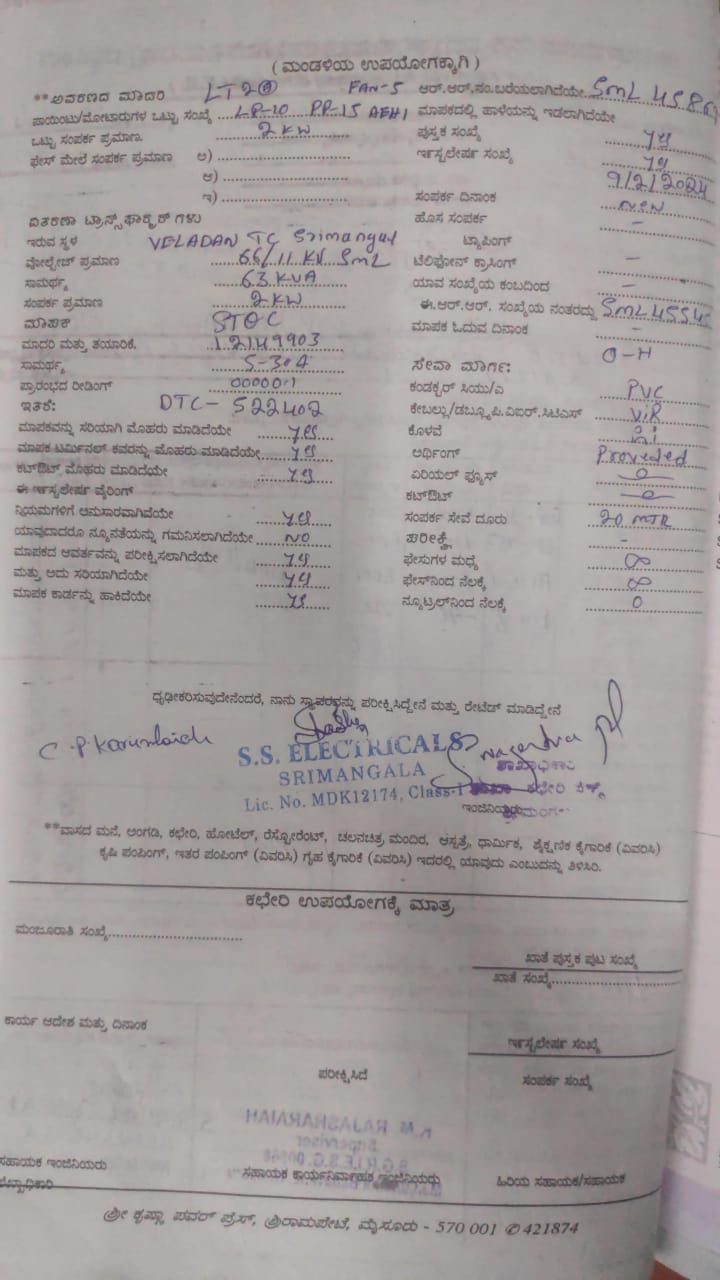 ( ಮಂಡಳಿಯ ಉಪಯೋಗಕ್ಕಾಗಿ )
**ಅವಕರಣದ ಮಾದರಿ LT2@ FAN-5
ಪಾಯಿಂಟು/ಮೋಟಾರುಗಳ ಒಟ್ಟು ಸಂಖ್ಯೆ LP-10 PP-15 AEH1
ಒಟ್ಟು ಸಂಪರ್ಕ ಪ್ರಮಾಣ. 2KW
ಫೇಸ್ ಮೇಲೆ ಸಂಪರ್ಕ ಪ್ರಮಾಣ ಅ)
ಆ)
ಇ)
ವಿತರಣಾ ಟ್ರಾನ್ಸ್‌ಫಾರ್ಮರ್ ಗಳು
ಇರುವ ಸ್ಥಳ VELADAN TC Srimangal
ವೋಲ್ಟೇಜ್ ಪ್ರಮಾಣ 66/11 KV SML
ಸಾಮರ್ಥ್ಯ 63 KVA
ಸಂಪರ್ಕ ಪ್ರಮಾಣ 2KW
ಮಾಪಕ
ಮಾದರಿ ಮತ್ತು ತಯಾರಿಕೆ. 12149903
ಸಾಮರ್ಥ್ಯ 5-30A
ಪ್ರಾರಂಭದ ರೀಡಿಂಗ್ 00000.1
ಇತರೆ: DTC- 522402
ಮಾಪಕವನ್ನು ಸರಿಯಾಗಿ ಮೊಹರು ಮಾಡಿದೆಯೇ yes
ಮಾಪಕ ಟರ್ಮಿನಲ್ ಕವರನ್ನು ಮೊಹರು ಮಾಡಿದೆಯೇ yes
ಕಟ್‌ಔಟ್ ಮೊಹರು ಮಾಡಿದೆಯೇ yes
ಈ ಇನ್ಸ್ಟಲೇಷನ್ ವೈರಿಂಗ್
ನಿಯಮಗಳಿಗೆ ಅನುಸಾರವಾಗಿದೆಯೇ yes
ಯಾವುದಾದರೂ ನ್ಯೂನತೆಯನ್ನು ಗಮನಿಸಲಾಗಿದೆಯೇ NO
ಮಾಪಕದ ಆವರ್ತವನ್ನು ಪರೀಕ್ಷಿಸಲಾಗಿದೆಯೇ yes
ಮತ್ತು ಅದು ಸರಿಯಾಗಿದೆಯೇ yes
ಮಾಪಕ ಕಾರ್ಡನ್ನು ಹಾಕಿದೆಯೇ yes
ಆರ್.ಆರ್.ನಂ.ಬರೆಯಲಾಗಿದೆಯೇ
ಮಾಪಕದಲ್ಲಿ ಹಾಳೆಯನ್ನು ಇಡಲಾಗಿದೆಯೇ
ಪುಸ್ತಕ ಸಂಖ್ಯೆ yes
ಇನ್ಸ್ಟಲೇಷನ್ ಸಂಖ್ಯೆ yes
ಸಂಪರ್ಕ ದಿನಾಂಕ 9/2/2024
ಹೊಸ ಸಂಪರ್ಕ new
ಟ್ಯಾಪಿಂಗ್ -
ಟೆಲಿಫೋನ್ ಕ್ರಾಸಿಂಗ್ -
ಯಾವ ಸಂಖ್ಯೆಯ ಕಂಬದಿಂದ -
ಈ.ಆರ್.ಆರ್. ಸಂಖ್ಯೆಯ ನಂತರದ್ದು
ಮಾಪಕ ಓದುವ ದಿನಾಂಕ -
ಸೇವಾ ಮಾರ್ಗ: O-H
ಕಂಡಕ್ಟರ್ ಸಿಯು/ಎ PVC
ಕೇಬಲ್ಲು/ಡಬ್ಲ್ಯೂ.ಪಿ.ವಿಐಆರ್.ಸಿಟಿಎಸ್ VIR
ಕೊಳವೆ
ಅರ್ಥಿಂಗ್ Proveded
ಏರಿಯಲ್ ಫ್ಯೂಸ್
ಕಟ್‌ಔಟ್
ಸಂಪರ್ಕ ಸೇವೆ ದೂರು 20 MTR
ಪರೀಕ್ಷೆ -
ಫೇಸುಗಳ ಮಧ್ಯೆ ∞
ಫೇಸ್‌ನಿಂದ ನೆಲಕ್ಕೆ ∞
ನ್ಯೂಟ್ರಲ್‌ನಿಂದ ನೆಲಕ್ಕೆ 0
ಧೃಢೀಕರಿಸುವುದೇನೆಂದರೆ, ನಾನು ಸ್ಥಾವರವನ್ನು ಪರೀಕ್ಷಿಸಿದ್ದೇನೆ ಮತ್ತು ರೇಟೆಡ್ ಮಾಡಿದ್ದೇನೆ
S.S. ELECTRICALS
SRIMANGALA
Lic. No. MDK12174, Class-I
ಇಂಜಿನಿಯರು
**ವಾಸದ ಮನೆ, ಅಂಗಡಿ, ಕಛೇರಿ, ಹೋಟೆಲ್, ರೆಸ್ಟೋರೆಂಟ್, ಚಲನಚಿತ್ರ ಮಂದಿರ, ಆಸ್ಪತ್ರೆ, ಧಾರ್ಮಿಕ, ಶೈಕ್ಷಣಿಕ ಕೈಗಾರಿಕೆ (ವಿವರಿಸಿ)
ಕೃಷಿ ಪಂಪಿಂಗ್, ಇತರ ಪಂಪಿಂಗ್ (ವಿವರಿಸಿ) ಗೃಹ ಕೈಗಾರಿಕೆ (ವಿವರಿಸಿ) ಇದರಲ್ಲಿ ಯಾವುದು ಎಂಬುದನ್ನು ತಿಳಿಸಿರಿ.
ಕಛೇರಿ ಉಪಯೋಗಕ್ಕೆ ಮಾತ್ರ
ಮಂಜೂರಾತಿ ಸಂಖ್ಯೆ
ಖಾತೆ ಪುಸ್ತಕ ಪುಟ ಸಂಖ್ಯೆ
ಖಾತೆ ಸಂಖ್ಯೆ
ಕಾರ್ಯ ಆದೇಶ ಮತ್ತು ದಿನಾಂಕ
ಇನ್ಸ್ಟಲೇಷನ್ ಸಂಖ್ಯೆ
ಪರೀಕ್ಷಿಸಿದೆ
ಸಂಪರ್ಕ ಸಂಖ್ಯೆ
ಸಹಾಯಕ ಇಂಜಿನಿಯರು
ಸಹಾಯಕ ಕಾರ್ಯನಿರ್ವಾಹಕ ಇಂಜಿನಿಯರು
ಹಿರಿಯ ಸಹಾಯಕ/ಸಹಾಯಕ
ಶ್ರೀ ಕೃಷ್ಣಾ ಪವರ್ ಪ್ರೆಸ್, ಶ್ರೀರಾಮಪೇಟೆ, ಮೈಸೂರು - 570 001 ✆ 421874